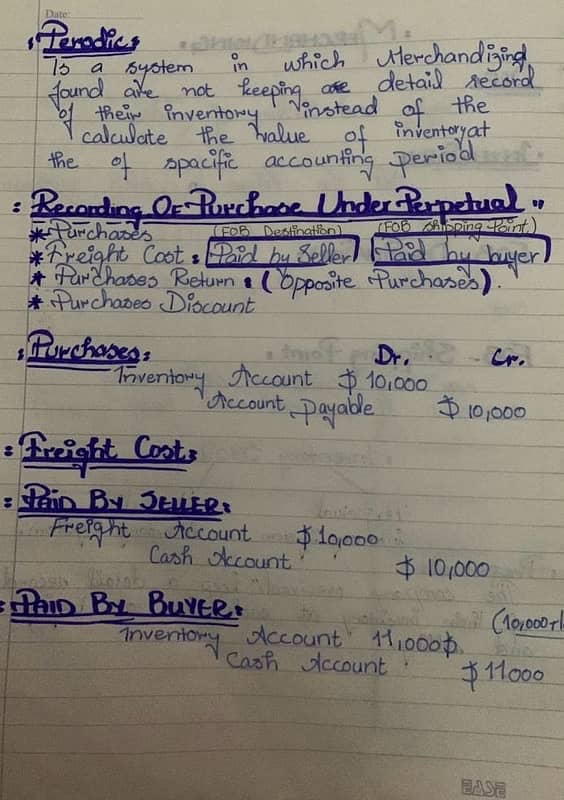 Date:
: Perodic :
Is a system in which Merchandizing
found are not keeping detail record
of their inventory instead of the
calculate the value of inventory at
the of spacific accounting period
: Recording Of Purchase Under Perpetual "
* Purchases (FOB Destination) (FOB Shipping Point)
* Freight Cost : Paid by Seller Paid by buyer
* Purchases Return : (Opposite Purchases).
* Purchases Discount
: Purchases : Dr. Cr.
Inventory Account $ 10,000
Account payable $ 10,000
: Freight Cost :
: Paid By Seller :
Freight Account $ 10,000
Cash Account $ 10,000
: Paid By Buyer : (10,000+1
Inventory Account 11,000$
Cash Account $ 11000
EASE